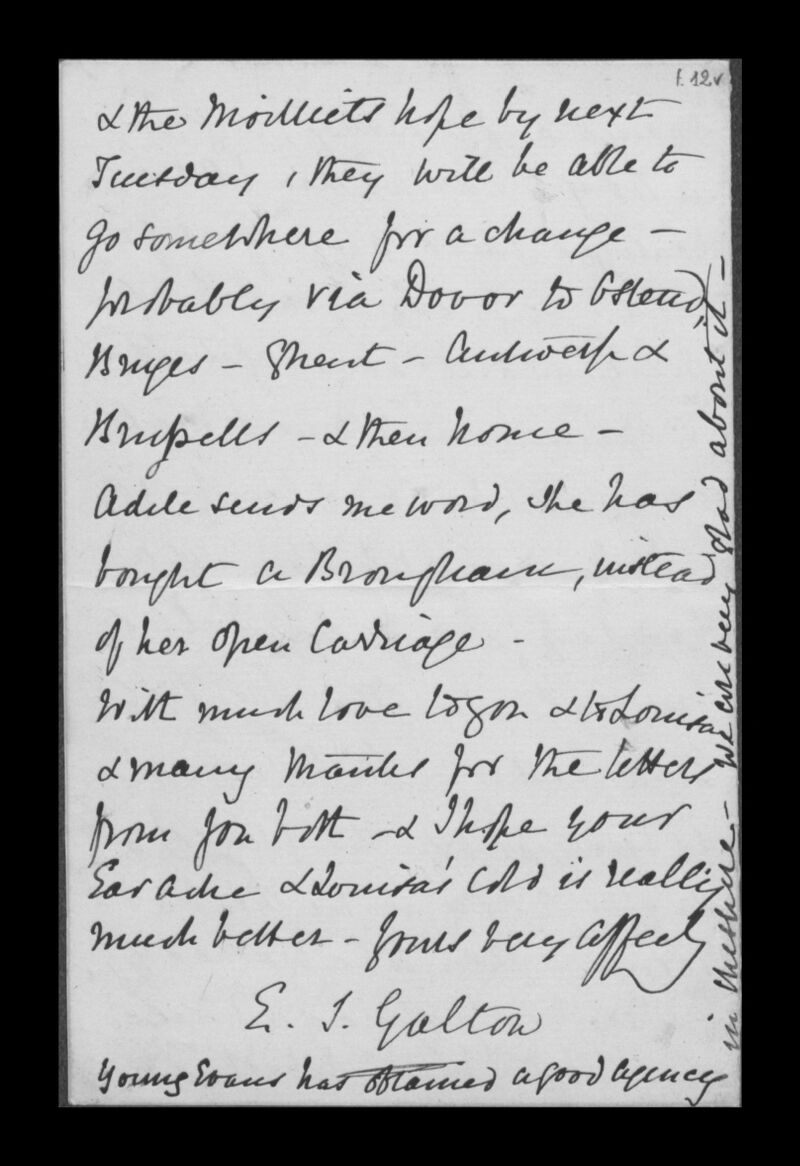 f. 12v
& the Moilliets hope by next
Tuesday, they will be able to
go somewhere for a change –
probably via Dovor to Ostend,
Bruges – Ghent – Antwerp &
Brussells – & then home –
Adele sends me word, she has
bought a Brougham, instead
of her open Carriage –
With much love to you & to Louisa
& many thanks for the letters
from you both – & I hope your
Ear ache & Louisa's cold is really
much better – Yours very affecly
E. S. Galton
Young Evans has obtained a good agency
in Cheshire – we are very glad about it –